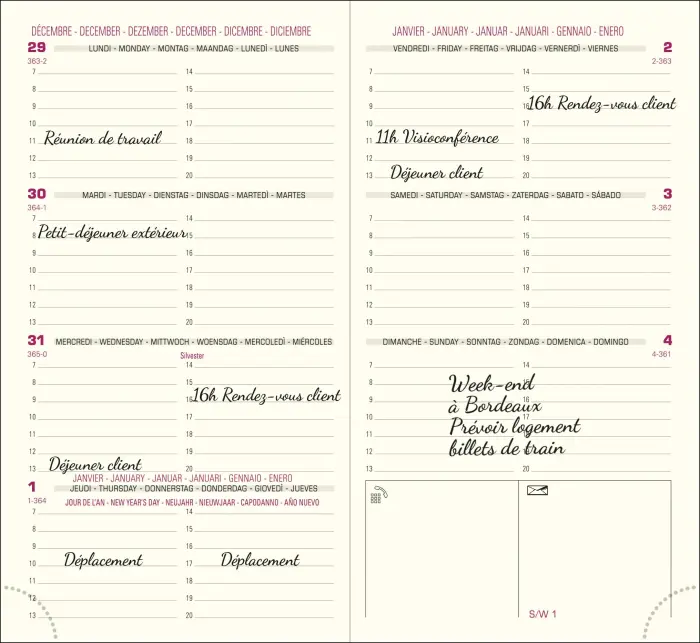 DÉCEMBRE - DECEMBER - DEZEMBER - DECEMBER - DICEMBRE - DICIEMBRE
29 LUNDI - MONDAY - MONTAG - MAANDAG - LUNEDÌ - LUNES
363-2
7 14
8 15
9 16
10 17
11 Réunion de travail 18
12 19
13 20
30 MARDI - TUESDAY - DIENSTAG - DINSDAG - MARTEDÌ - MARTES
364-1
7 14
8 Petit-déjeuner extérieur 15
9 16
10 17
11 18
12 19
13 20
31 MERCREDI - WEDNESDAY - MITTWOCH - WOENSDAG - MERCOLEDÌ - MIÉRCOLES
365-0 Silvester
7 14
8 15
9 16 16h Rendez-vous client
10 17
11 18
12 19
13 Déjeuner client 20
JANVIER - JANUARY - JANUAR - JANUARI - GENNAIO - ENERO
1 JEUDI - THURSDAY - DONNERSTAG - DONDERDAG - GIOVEDÌ - JUEVES
1-364 JOUR DE L'AN - NEW YEAR'S DAY - NEUJAHR - NIEUWJAAR - CAPODANNO - AÑO NUEVO
7 14
8 15
9 16
10 Déplacement 17 Déplacement
11 18
12 19
13 20
JANVIER - JANUARY - JANUAR - JANUARI - GENNAIO - ENERO
VENDREDI - FRIDAY - FREITAG - VRIJDAG - VERNERDÌ - VIERNES 2
2-363
7 14
8 15
9 16 16h Rendez-vous client
10 17
11 11h Visioconférence 18
12 19
13 Déjeuner client 20
SAMEDI - SATURDAY - SAMSTAG - ZATERDAG - SABATO - SÁBADO 3
3-362
7 14
8 15
9 16
10 17
11 18
12 19
13 20
DIMANCHE - SUNDAY - SONNTAG - ZONDAG - DOMENICA - DOMINGO 4
4-361
7 14
8 Week-end 15
9 à Bordeaux
10 Prévoir logement
11
12 billets de train
13 20
S/W 1